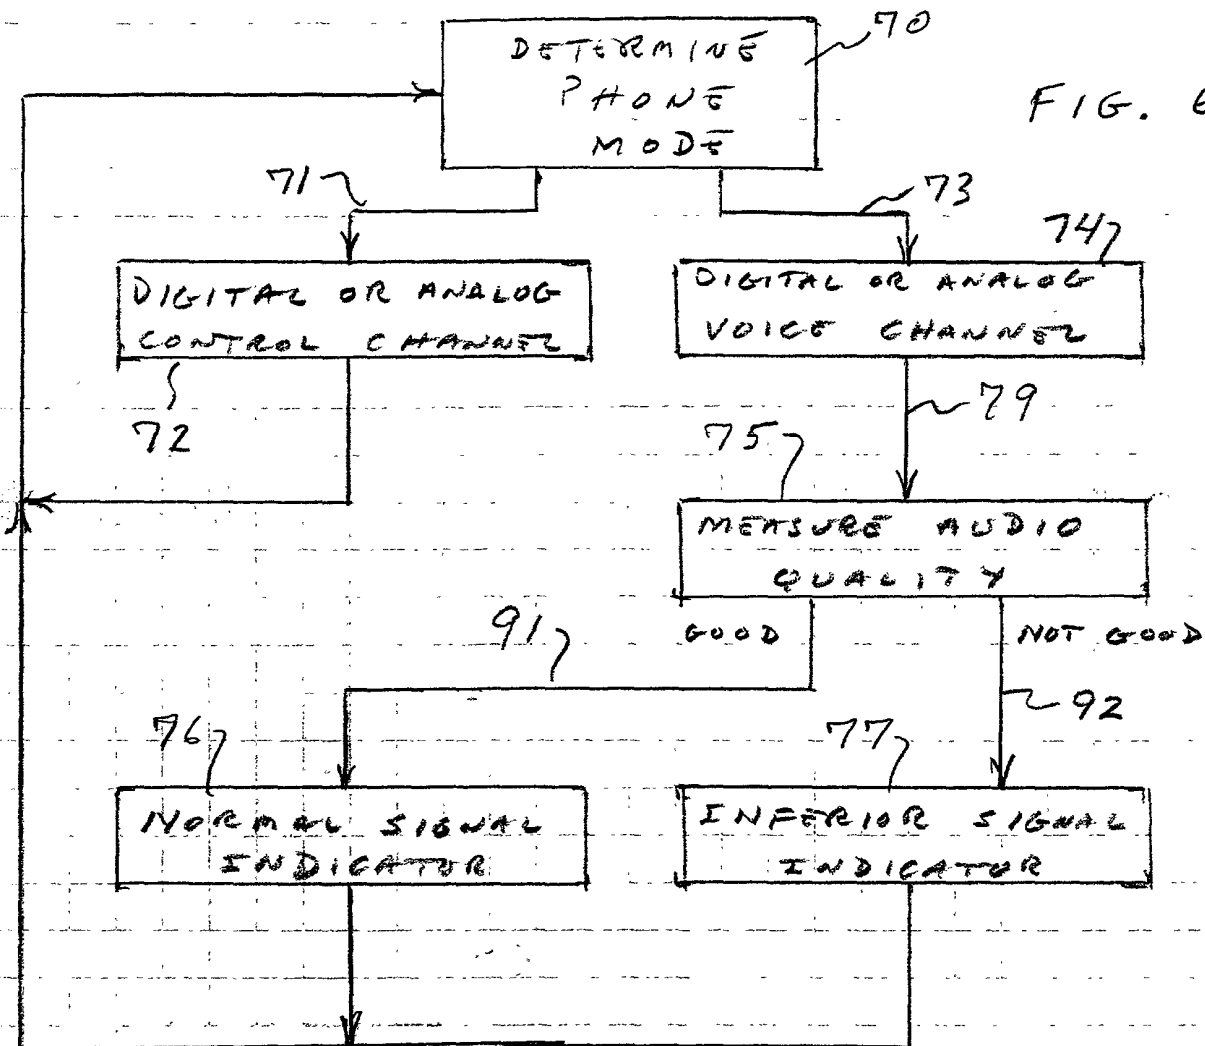 70
DETERMINE
PHONE
MODE
FIG. 6
71
73
74
DIGITAL OR ANALOG
CONTROL CHANNEL
DIGITAL OR ANALOG
VOICE CHANNEL
72
79
75
MEASURE AUDIO
QUALITY
GOOD
NOT GOOD
91
92
76
77
NORMAL SIGNAL
INDICATOR
INFERIOR SIGNAL
INDICATOR